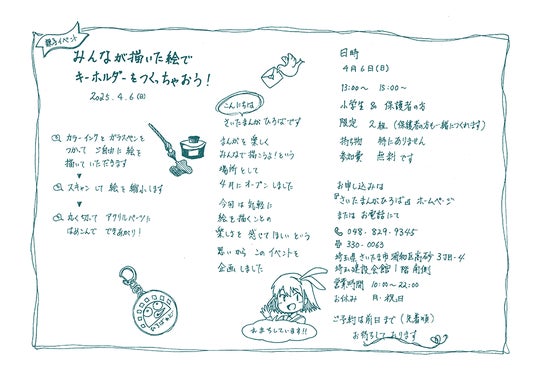 親子イベント
みんなが描いた絵で
キーホルダーをつくっちゃおう!
2025.4.6(日)
① カラーインクとガラスペンを
つかって ご自由に 絵を
描いていただきます
▼
② スキャンして 絵を 縮小します
▼
③ 丸く切って アクリルパーツに
はめこんで できあがり!
こんにちは
さいたまんがひろばです
まんがを楽しく
みんなで描こうよ!という
場所として
4月にオープンしました
今回は気軽に
絵を描くことの
楽しさを 感じてほしいという
思いから このイベントを
企画しました
おまちしています!!
日時
4月6日(日)
13:00〜 15:00〜
小学生 & 保護者の方
限定 2組(保護者の方も一緒につくれます)
持ち物 特にありません
参加費 無料です
お申し込みは
『さいたまんがひろば』ホームページ
または お電話にて
048-829-9345
〒330-0063
埼玉県さいたま市浦和区高砂3丁目-4
埼玉建設会館1階南側
営業時間 10:00〜22:00
お休み 月・祝日
ご予約は前日まで(先着順)
お待ちしております